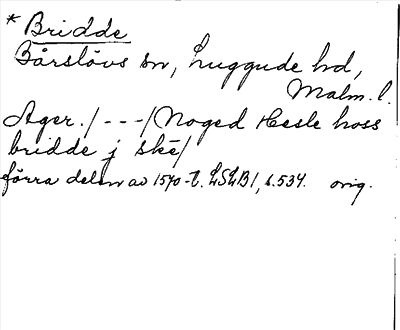 * Bridde
Bårslövs sn, Luggude hd,
Malm. l.
Ager. / - - - / Noged Hesle hoss
bridde j skē /
förra delen av 1570-t. LSLB 1, s. 534. orig.